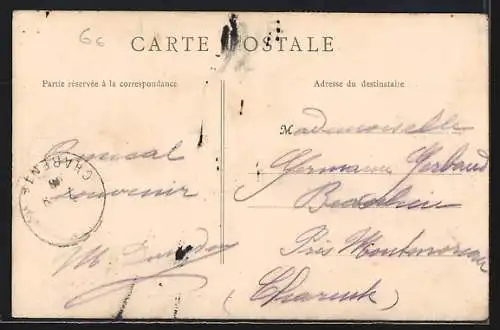 66
CARTE POSTALE
Partie réservée à la correspondance
Adresse du destinataire
Amical
souvenir
M
CHARENTE
Mademoiselle
Germaine Gerbaud
Près Montmoreau
(Charente)